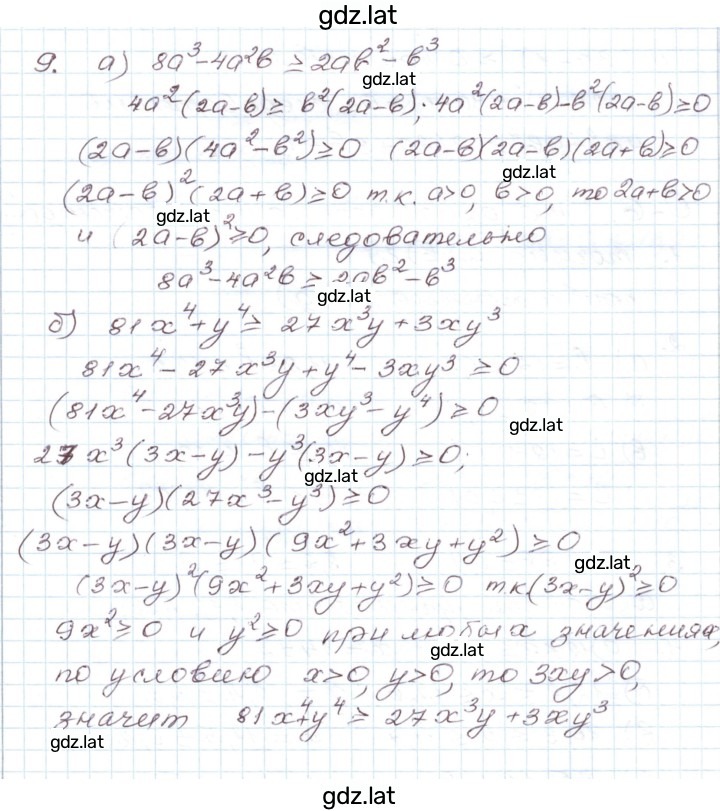 gdz.lat
9. а) 8a³-4a²b ≥ 2ab²-b³
gdz.lat
4a²(2a-b) ≥ b²(2a-b); 4a²(2a-b)-b²(2a-b) ≥ 0
(2a-b)(4a²-b²) ≥ 0 (2a-b)(2a-b)(2a+b) ≥ 0
gdz.lat
(2a-b)²(2a+b) ≥ 0 т.к. a>0, b>0, то 2a+b>0
gdz.lat
и (2a-b)² ≥ 0, следовательно
8a³-4a²b ≥ 2ab²-b³
gdz.lat
б) 81x⁴+y⁴ ≥ 27x³y+3xy³
81x⁴-27x³y+y⁴-3xy³ ≥ 0
(81x⁴-27x³y)-(3xy³-y⁴) ≥ 0
gdz.lat
27x³(3x-y)-y³(3x-y) ≥ 0;
gdz.lat
(3x-y)(27x³-y³) ≥ 0
(3x-y)(3x-y)(9x²+3xy+y²) ≥ 0
gdz.lat
(3x-y)²(9x²+3xy+y²) ≥ 0 т.к.(3x-y)² ≥ 0
9x² ≥ 0 и y² ≥ 0 при любых значениях,
gdz.lat
по условию x>0, y>0, то 3xy>0,
значит 81x⁴+y⁴ ≥ 27x³y+3xy³
gdz.lat
gdz.lat